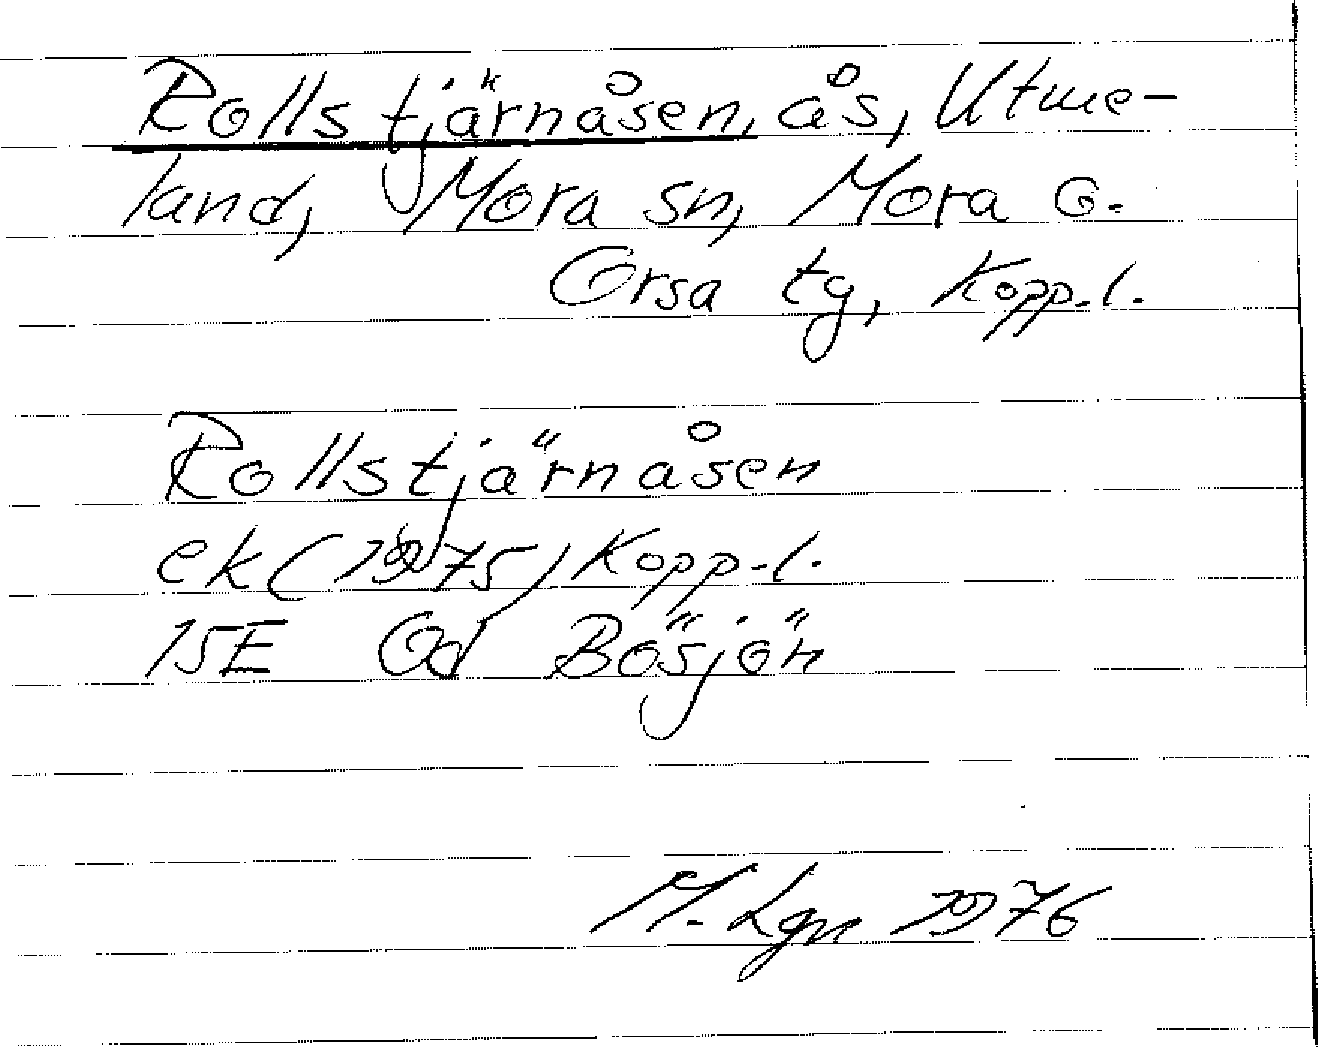 Rollstjärnåsen, ås, Utme-
land, Mora sn, Mora o.
Orsa tg, Kopp.l.
Rollstjärnåsen
ek (1975) Kopp.l.
15E 0d Bösjön
M. Lgn 1976